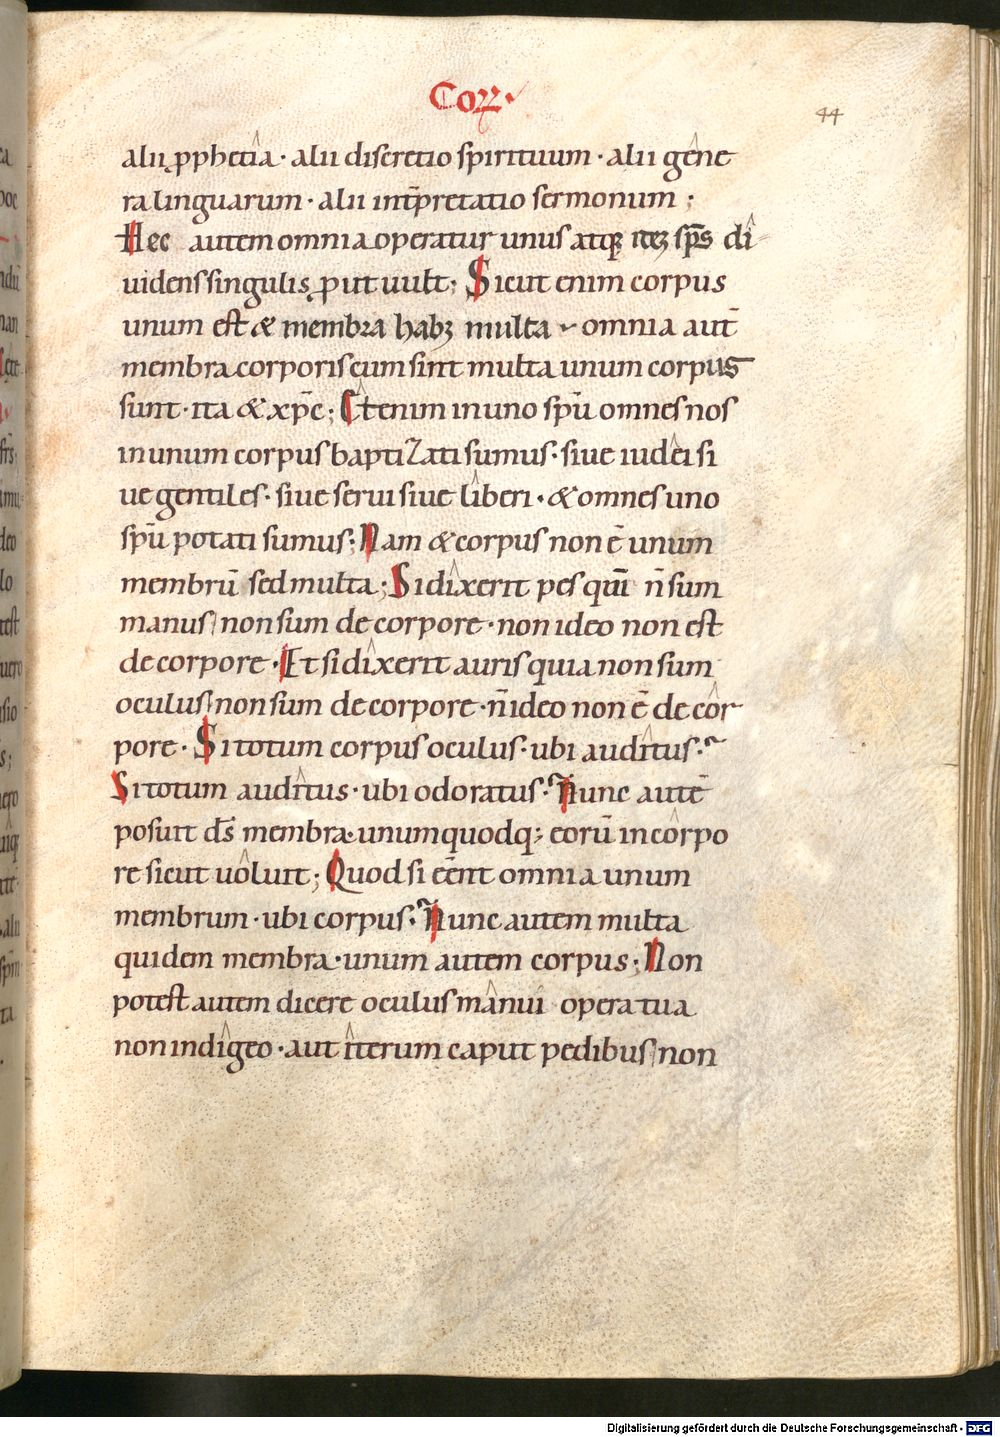 Corr·
44
alii ꝓphetia · alii discretio spirituum · alii gene
ra linguarum · alii int̄pretatio sermonum ;
Hec autem omnia operatur unus atq; idē sp̄s di
uidens singulis ꝓut uult ; Sicut enim corpus
unum est & membra habꝫ multa · omnia aut̄
membra corporis cum sint multa unum corpus
sunt · ita & xp̄c ; Etenim in uno sp̄u omnes nos
in unum corpus baptizati sumus · siue iudei si
ue gentiles · siue serui siue liberi · & omnes uno
sp̄u potati sumus ; Nam & corpus non ē unum
membrū sed multa ; Si dixerit pes qm̄ n̄ sum
manus / non sum de corpore · non ideo non est
de corpore · Et si dixerit auris quia non sum
oculus / non sum de corpore · n̄ ideo non ē de cor
pore · Si totum corpus oculus · ubi auditus ·
Si totum auditus · ubi odoratus · Nunc autē
posuit d̄s membra · unumquodq; eorū in corpo
re sicut uoluit ; Quod si eēnt omnia unum
membrum · ubi corpus · Nunc autem multa
quidem membra · unum autem corpus ; Non
potest autem dicere oculus manui opera tua
non indigeo · aut iterum caput pedibus / non
Digitalisierung gefördert durch die Deutsche Forschungsgemeinschaft - DFG